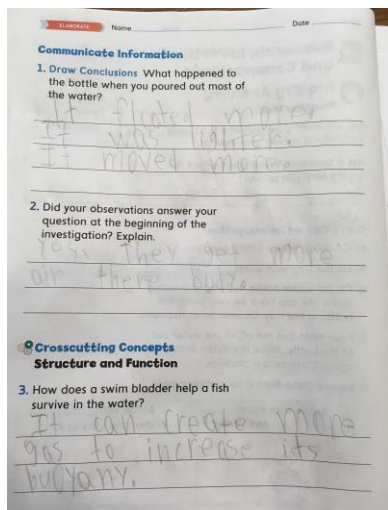 ELABORATE
Name
Date
Communicate Information
1. Draw Conclusions What happened to
the bottle when you poured out most of
the water?
It floated more
It was lighter.
It moved more.
2. Did your observations answer your
question at the beginning of the
investigation? Explain.
Yes, they get more
air there body.
Crosscutting Concepts
Structure and Function
3. How does a swim bladder help a fish
survive in the water?
It can create more
gas to increase its
bucyany.